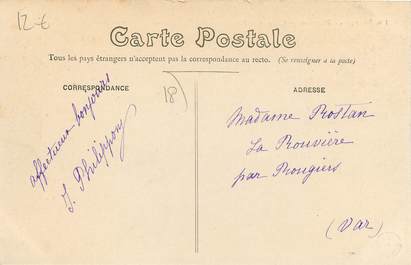 12-€
Carte Postale
Tous les pays étrangers n'acceptent pas la correspondance au recto. (Se renseigner à la poste)
CORRESPONDANCE
ADRESSE
18
affectueux bonjours
J. Philippon
Madame Rostan
La Rouvière
par Rougiers
(Var)